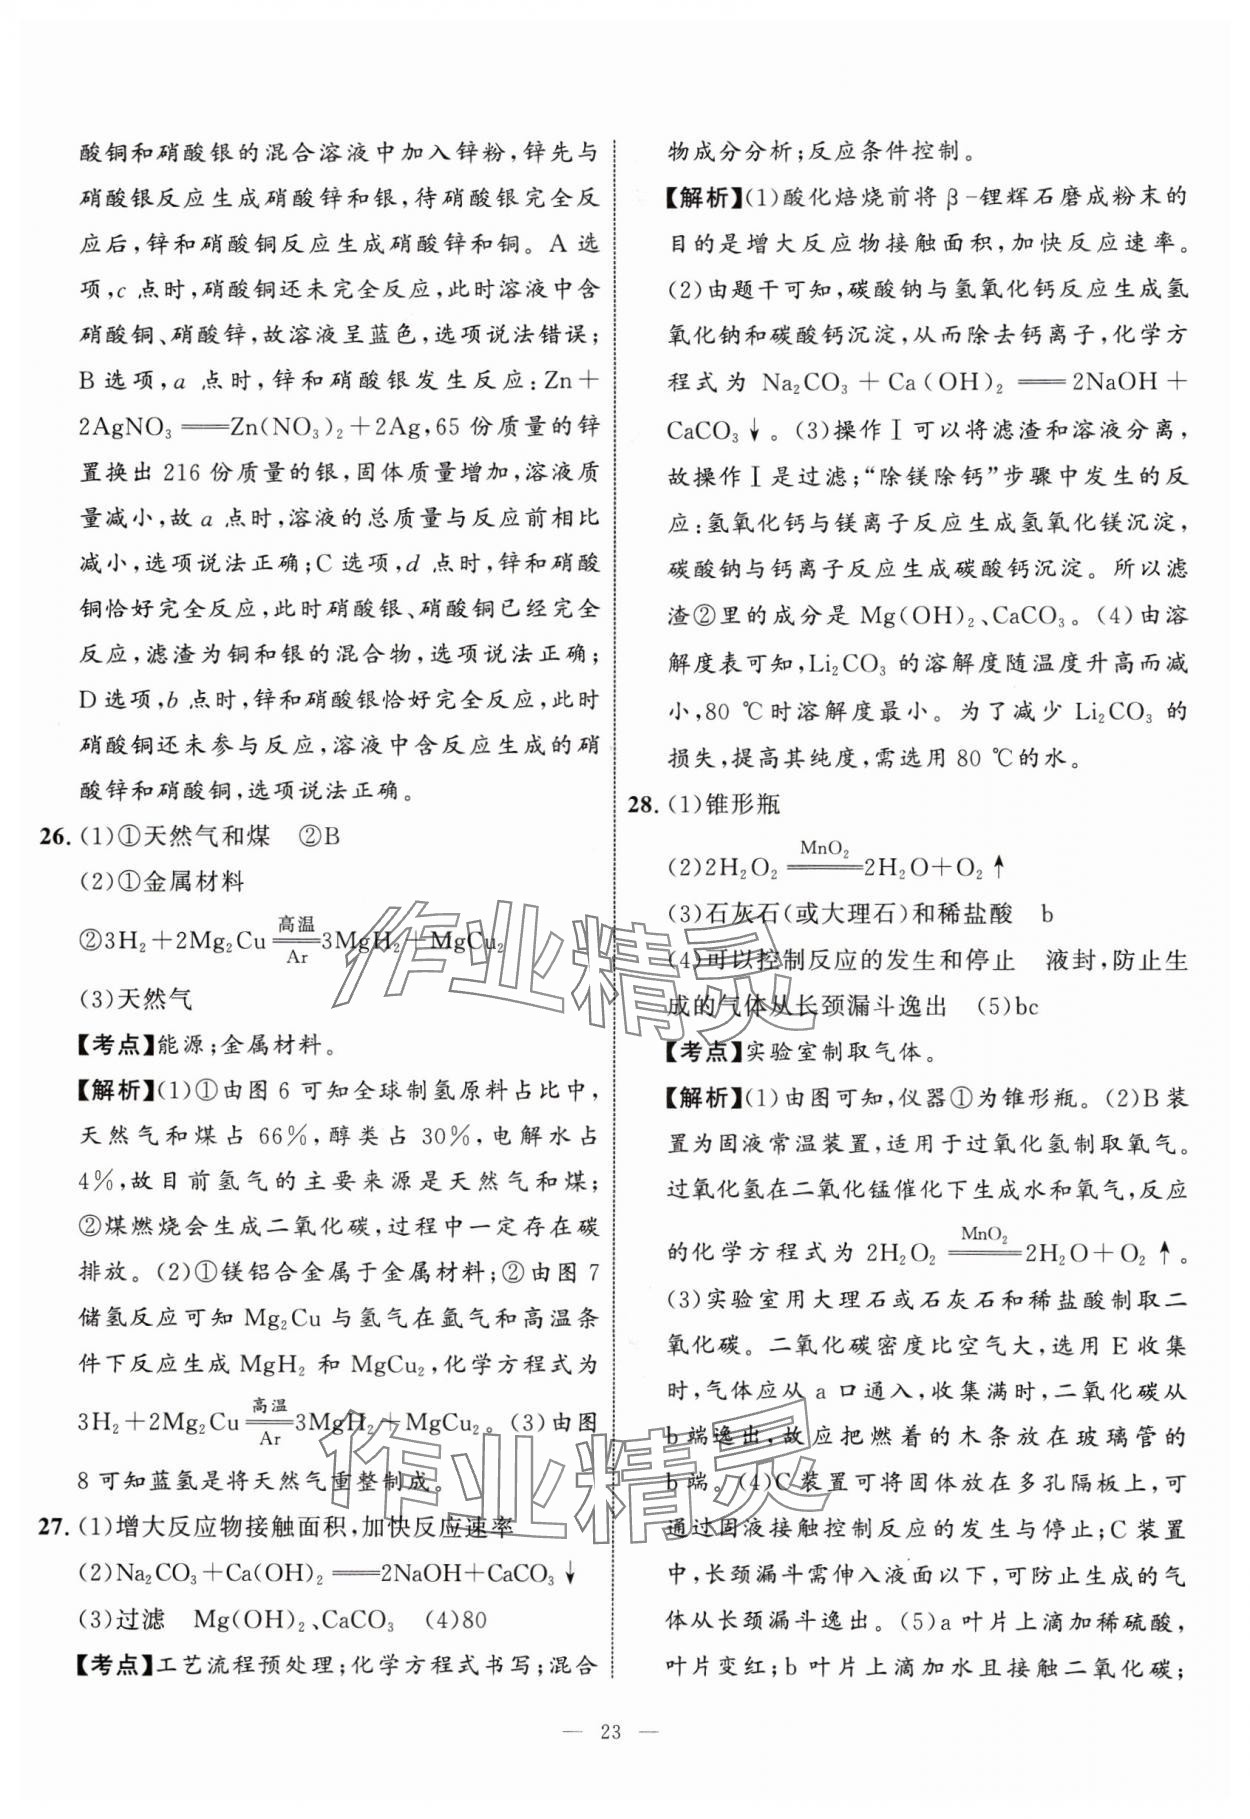 酸铜和硝酸银的混合溶液中加入锌粉,锌先与
硝酸银反应生成硝酸锌和银,待硝酸银完全反
应后,锌和硝酸铜反应生成硝酸锌和铜。A 选
项,c 点时,硝酸铜还未完全反应,此时溶液中含
硝酸铜、硝酸锌,故溶液呈蓝色,选项说法错误;
B 选项,a 点时,锌和硝酸银发生反应:Zn+
2AgNO₃══Zn(NO₃)₂+2Ag,65 份质量的锌
置换出 216 份质量的银,固体质量增加,溶液质
量减小,故 a 点时,溶液的总质量与反应前相比
减小,选项说法正确;C 选项,d 点时,锌和硝酸
铜恰好完全反应,此时硝酸银、硝酸铜已经完全
反应,滤渣为铜和银的混合物,选项说法正确;
D 选项,b 点时,锌和硝酸银恰好完全反应,此时
硝酸铜还未参与反应,溶液中含反应生成的硝
酸锌和硝酸铜,选项说法正确。
26. (1)①天然气和煤 ②B
(2)①金属材料
②3H₂+2Mg₂Cu ═高温/Ar═ 3MgH₂+MgCu₂
(3)天然气
【考点】能源;金属材料。
【解析】(1)①由图 6 可知全球制氢原料占比中,
天然气和煤占 66%,醇类占 30%,电解水占
4%,故目前氢气的主要来源是天然气和煤;
②煤燃烧会生成二氧化碳,过程中一定存在碳
排放。(2)①镁铝合金属于金属材料;②由图 7
储氢反应可知 Mg₂Cu 与氢气在氩气和高温条
件下反应生成 MgH₂ 和 MgCu₂,化学方程式为
3H₂+2Mg₂Cu ═高温/Ar═ 3MgH₂+MgCu₂。(3)由图
8 可知蓝氢是将天然气重整制成。
27. (1)增大反应物接触面积,加快反应速率
(2)Na₂CO₃+Ca(OH)₂══2NaOH+CaCO₃↓
(3)过滤 Mg(OH)₂、CaCO₃ (4)80
【考点】工艺流程预处理;化学方程式书写;混合
物成分分析;反应条件控制。
【解析】(1)酸化焙烧前将 β-锂辉石磨成粉末的
目的是增大反应物接触面积,加快反应速率。
(2)由题干可知,碳酸钠与氢氧化钙反应生成氢
氧化钠和碳酸钙沉淀,从而除去钙离子,化学方
程式为 Na₂CO₃+Ca(OH)₂══2NaOH+
CaCO₃↓。(3)操作Ⅰ可以将滤渣和溶液分离,
故操作Ⅰ是过滤;“除镁除钙”步骤中发生的反
应:氢氧化钙与镁离子反应生成氢氧化镁沉淀,
碳酸钠与钙离子反应生成碳酸钙沉淀。所以滤
渣②里的成分是 Mg(OH)₂、CaCO₃。(4)由溶
解度表可知,Li₂CO₃ 的溶解度随温度升高而减
小,80 ℃时溶解度最小。为了减少 Li₂CO₃ 的
损失,提高其纯度,需选用 80 ℃的水。
28. (1)锥形瓶
(2)2H₂O₂ ═MnO₂═ 2H₂O+O₂↑
(3)石灰石(或大理石)和稀盐酸 b
(4)可以控制反应的发生和停止 液封,防止生
成的气体从长颈漏斗逸出 (5)bc
【考点】实验室制取气体。
【解析】(1)由图可知,仪器①为锥形瓶。(2)B 装
置为固液常温装置,适用于过氧化氢制取氧气。
过氧化氢在二氧化锰催化下生成水和氧气,反应
的化学方程式为 2H₂O₂ ═MnO₂═ 2H₂O+O₂↑。
(3)实验室用大理石或石灰石和稀盐酸制取二
氧化碳。二氧化碳密度比空气大,选用 E 收集
时,气体应从 a 口通入,收集满时,二氧化碳从
b 端逸出,故应把燃着的木条放在玻璃管的
b 端。(4)C 装置可将固体放在多孔隔板上,可
通过固液接触控制反应的发生与停止;C 装置
中,长颈漏斗需伸入液面以下,可防止生成的气
体从长颈漏斗逸出。(5)a 叶片上滴加稀硫酸,
叶片变红;b 叶片上滴加水且接触二氧化碳;
— 23 —
作业精灵
作业精灵